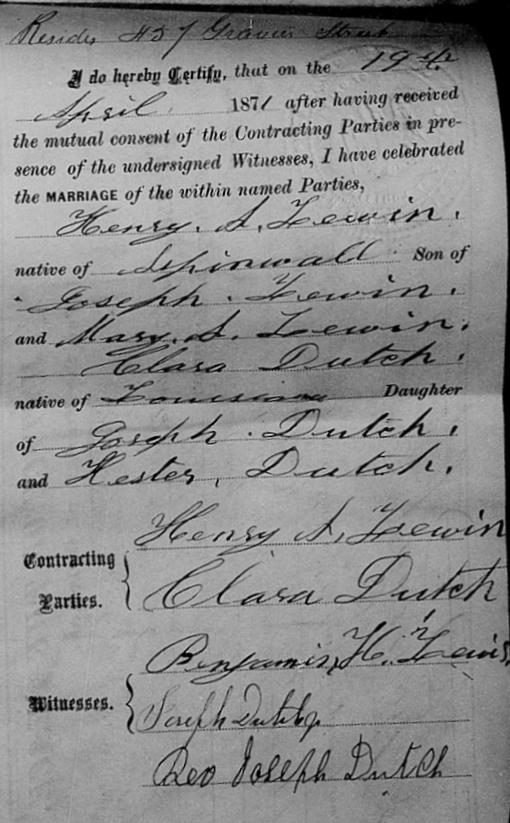 Resides 457 Gravier Street
I do hereby Certify, that on the 19th
April 1871 after having received
the mutual consent of the Contracting Parties in pre-
sence of the undersigned Witnesses, I have celebrated
the MARRIAGE of the within named Parties,
Henry. A. Lewin.
native of Aspinwall Son of
Joseph. Lewin.
and Mary. A. Lewin.
Clara Dutch.
native of Louisiana Daughter
of Joseph. Dutch.
and Hester, Dutch.
Henry A. Lewin
Contracting
Parties.
Clara Dutch
Benjamin, H. Lewis,
Witnesses.
Joseph
Rev Joseph Dutch